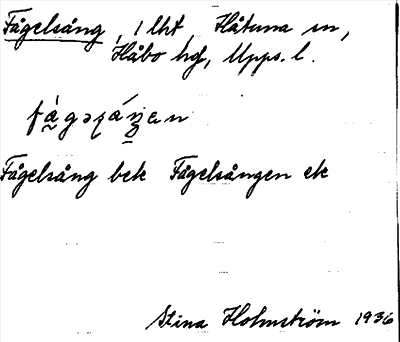 Fågelsång, 1 lht, Håtuna sn,
Håbo hd, Upps. l.
Fågelsång bek Fågelsången ek
Stina Holmström 1936